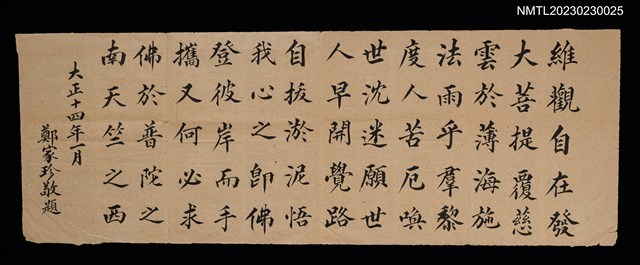 NMTL20230230025
維觀自在發
大菩提覆慈
雲於薄海施
法雨乎羣黎
度人苦厄喚
世沈迷願世
人早開覺路
自拔淤泥悟
我心之即佛
登彼岸而手
攜又何必求
佛於普陀之
南天竺之西
大正十四年一月
鄭家珍敬題